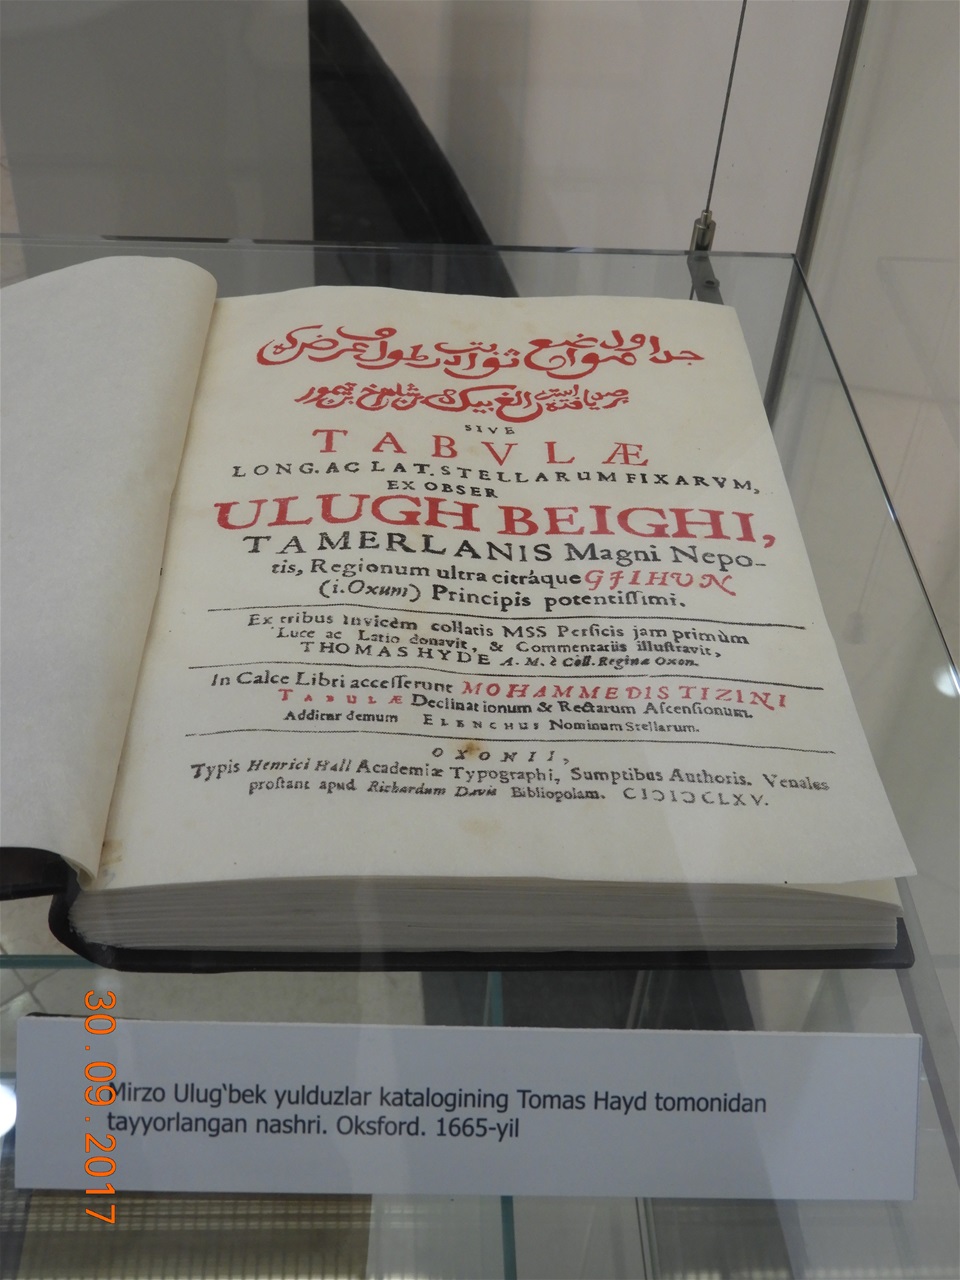 جداول مواضع ثوابت در طول و عرض که
برصد یافته است الغ بیک بن شاهرخ بن تیمور
SIVE
TABVLÆ
LONG. AC LAT. STELLARUM FIXARVM,
EX OBSER
ULUGH BEIGHI,
TAMERLANIS Magni Nepo-
tis, Regionum ultra citráque GJIHUN
(i. Oxum) Principis potentiſſimi.
Ex tribus invicèm collatis MSS Perſicis jam primùm
Luce ac Latio donavit, & Commentariis illuſtravit,
THOMAS HYDE A. M. è Coll. Reginæ Oxon.
In Calce Libri acceſſerunt MOHAMMEDIS TIZINI
TABULÆ Declinationum & Rectarum Aſcenſionum.
Additur demum ELENCHUS Nominum Stellarum.
OXONII,
Typis Henrici Hall Academiæ Typographi, Sumptibus Authoris. Venales
proſtant apud Richardum Davis Bibliopolam. CIƆIƆCLXV.
Mirzo Ulug‘bek yulduzlar katalogining Tomas Hayd tomonidan
tayyorlangan nashri. Oksford. 1665-yil
30.09.2017